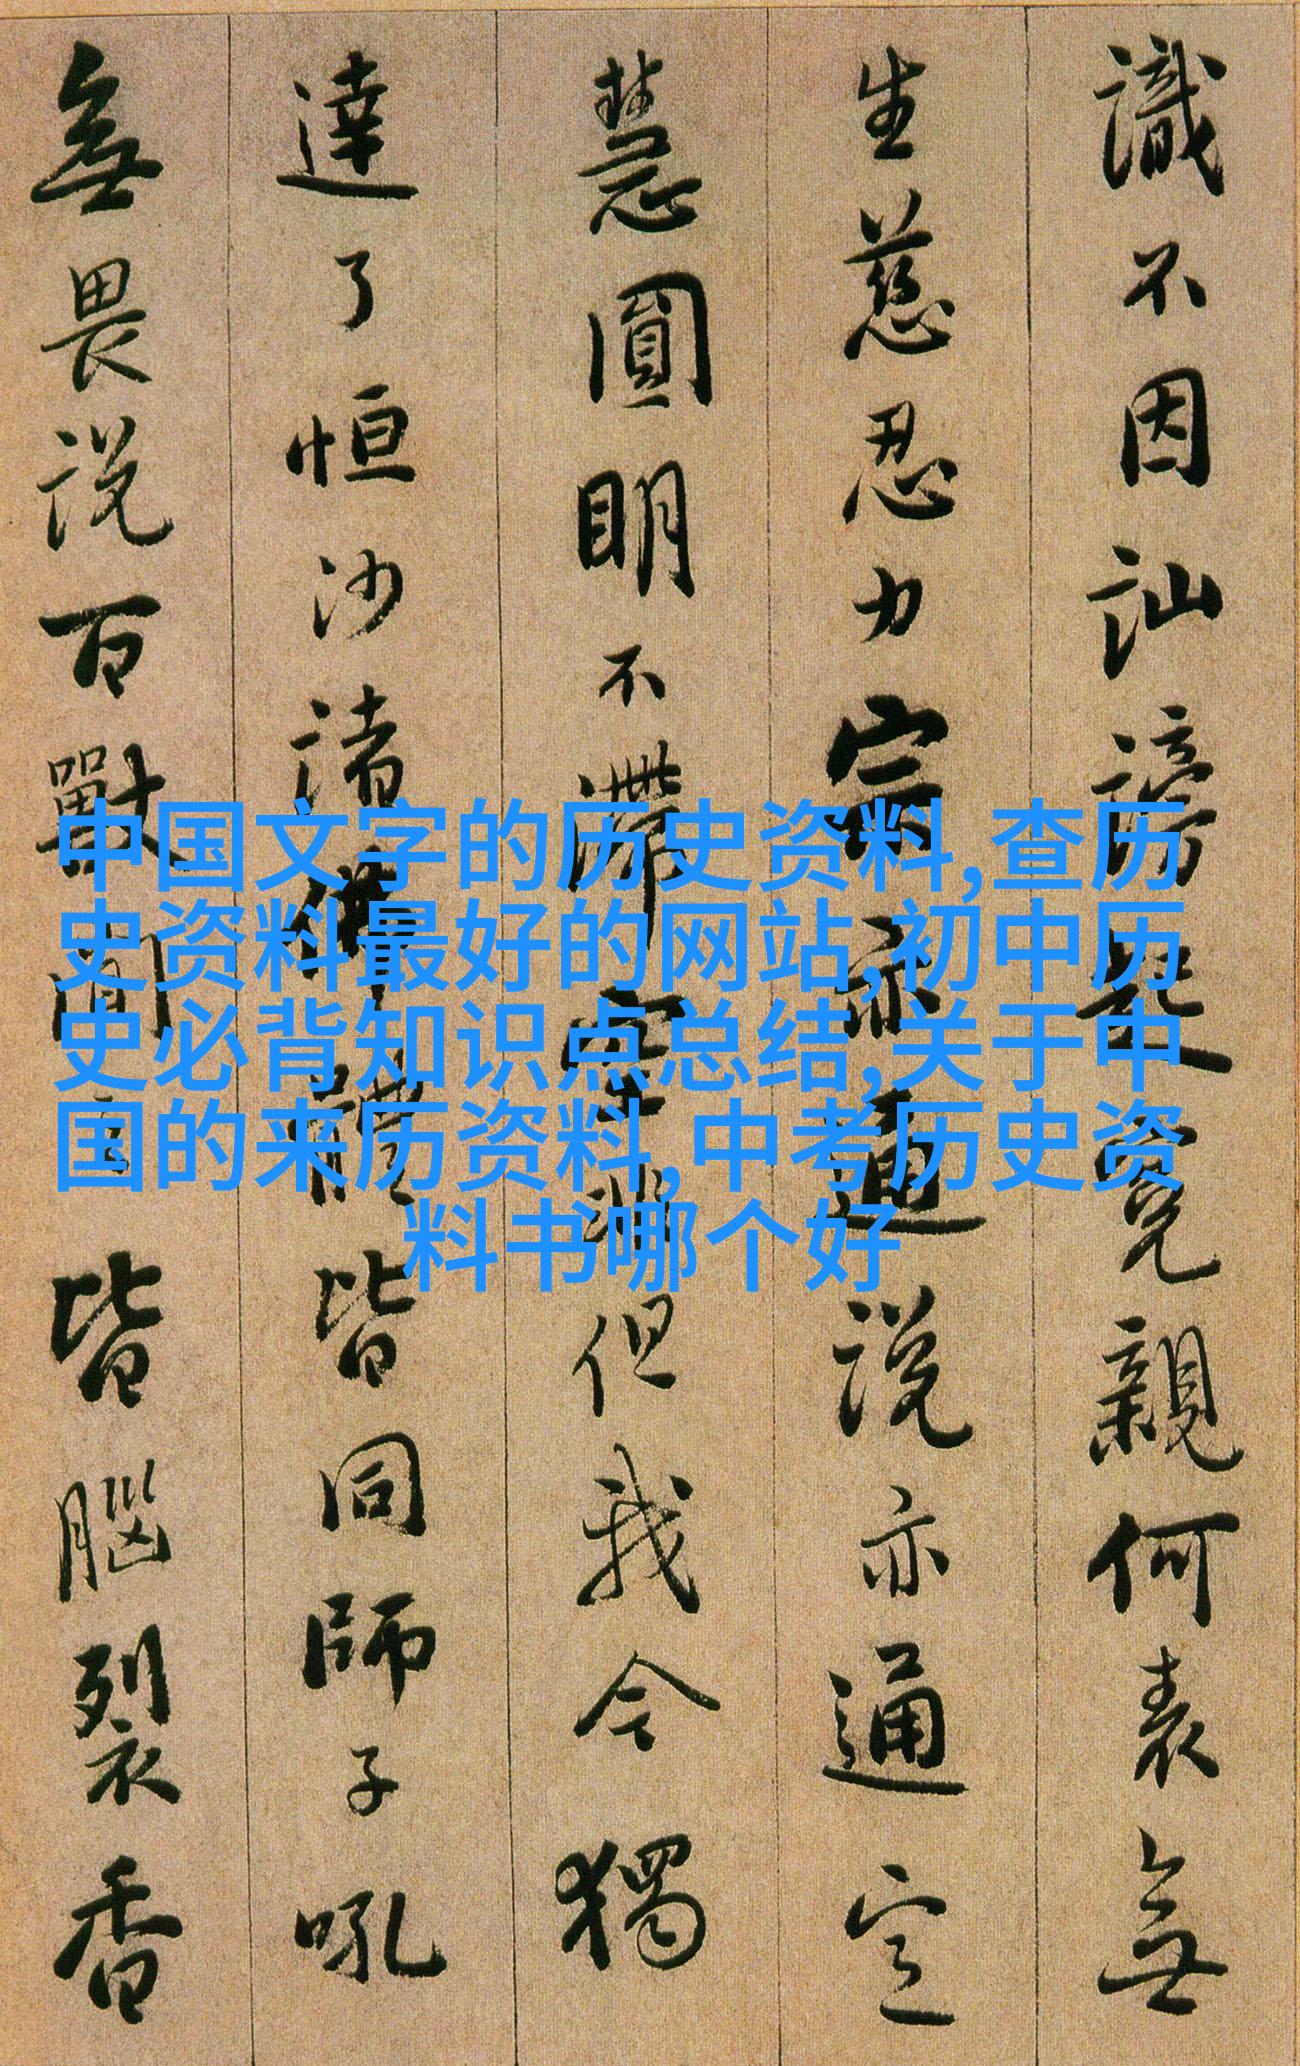 識不因訕謗起冤親何表無
生慈忍力宗亦通說亦通定
慧圓明不滯空非但我今獨
達了恒沙諸佛體皆同師子吼
無畏說百獸聞之皆腦裂香
中国文字的历史资料,查历
史资料最好的网站,初中历
史必背知识点总结,关于中
国的来历资料,中考历史资
料书哪个好